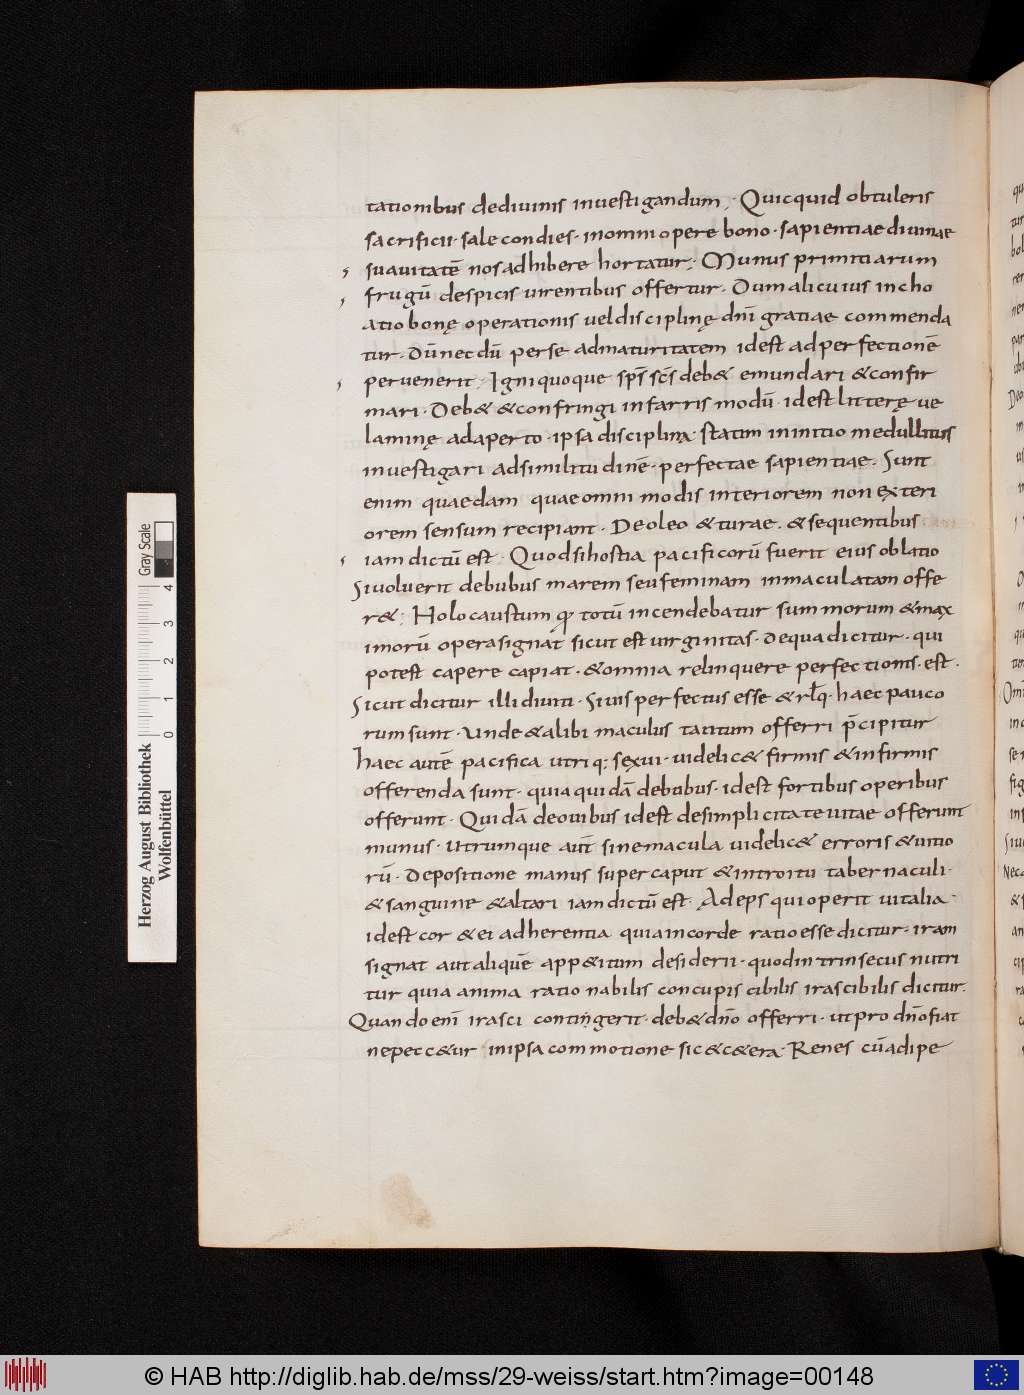 tationibus dediuinis inuestigandum; Quicquid obtuleris
sacrificii· sale condies· inomni opere bono· sapientiae diuinae
suauitatē nos adhibere hortatur; Munus primitiarum
frugū despicis uirentibus offertur· Dum alicuius incho
atio bonę operationis uel disciplinę dn̄i gratiae commenda
tur· Dū necdū perse ad maturitatem idest ad perfectionē
peruenerit; Igni quoque sps̄ scs̄ deb& emundari & confir
mari· Deb& & confringi in farris modū· idest litterę ue
laminę adaperto· ipsa disciplina· statim in initio medullitus
inuestigari ad similitudinē· perfectae sapientiae· Sunt
enim quaedam quae omni modis interiorem non exteri
orem sensum recipiant· De oleo & turae· & sequentibus
iam dictū est· Quod si hostia pacificorū fuerit eius oblatio
Si uoluerit de bubus marem seu feminam inmaculatam offe
r&; Holocaustum qđ totū incendebatur summorum & max
imorū opera signat sicut est uirginitas· De qua dicitur· qui
potest capere capiat· & omnia relinquere perfectionis· est·
Sicut dicitur illi diuiti· Si uis perfectus esse & rlq· haec pauco
rum sunt· Unde & alibi maculus tantum offerri p̄cipitur
haec autē pacifica utriq; sexui· uidelic& firmis & infirmis
offerenda sunt· quia quidā de bubus· idest fortibus operibus
offerunt· Quidā de ouibus idest de simplicitate uitae offerunt
munus· Utrumque aut̄ sine macula uidelic& erroris & uitio
rū· Depositione manus super caput & introitu tabernaculi·
& sanguine & altari iam dictū est· Adeps qui operit uitalia·
idest cor & ei adherentia quia in corde ratio esse dicitur· iram
signat aut aliquē app&itum desiderii· quod intrinsecus nutri
tur quia anima rationabilis concupiscibilis irascibilis dicitur·
Quando eni irasci contingerit· deb& dn̄o offerri· ut pro dn̄o fiat
ne pecc&ur in ipsa commotione sic & c&era· Renes cū adipe
Herzog August Bibliothek
Wolfenbüttel
0 1 2 3 4
Gray Scale
© HAB http://diglib.hab.de/mss/29-weiss/start.htm?image=00148